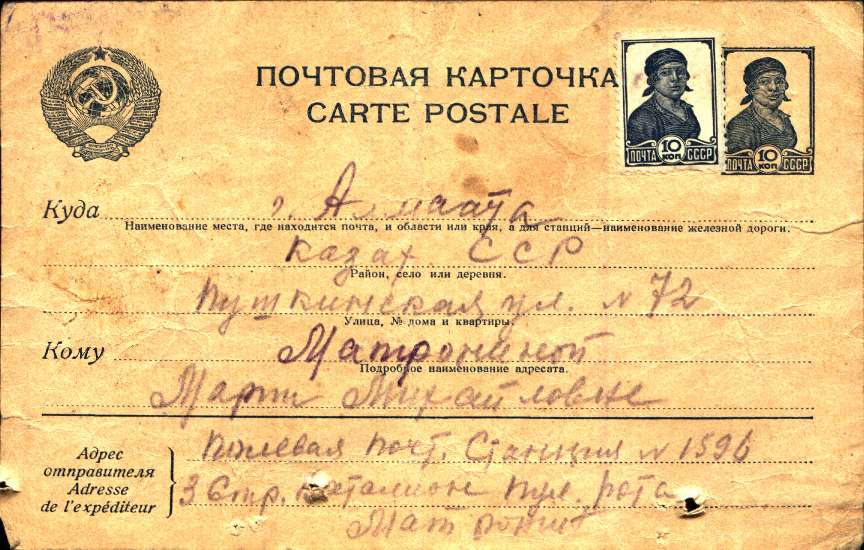 ПОЧТОВАЯ КАРТОЧКА
CARTE POSTALE
ПОЧТА 10 КОП СССР
ПОЧТА 10 КОП СССР
Куда г. Алмаата
Наименование места, где находится почта, и области или края, а для станций—наименование железной дороги.
Казах. ССР
Район, село или деревня.
Пушкинская ул. N 72
Улица, № дома и квартиры.
Кому Матрониной
Подробное наименование адресата.
Марии Михайловне
Адрес отправителя
Adresse de l'expéditeur
Полевая почт. Станция N 1596
3 Стр. баталион пул. рота